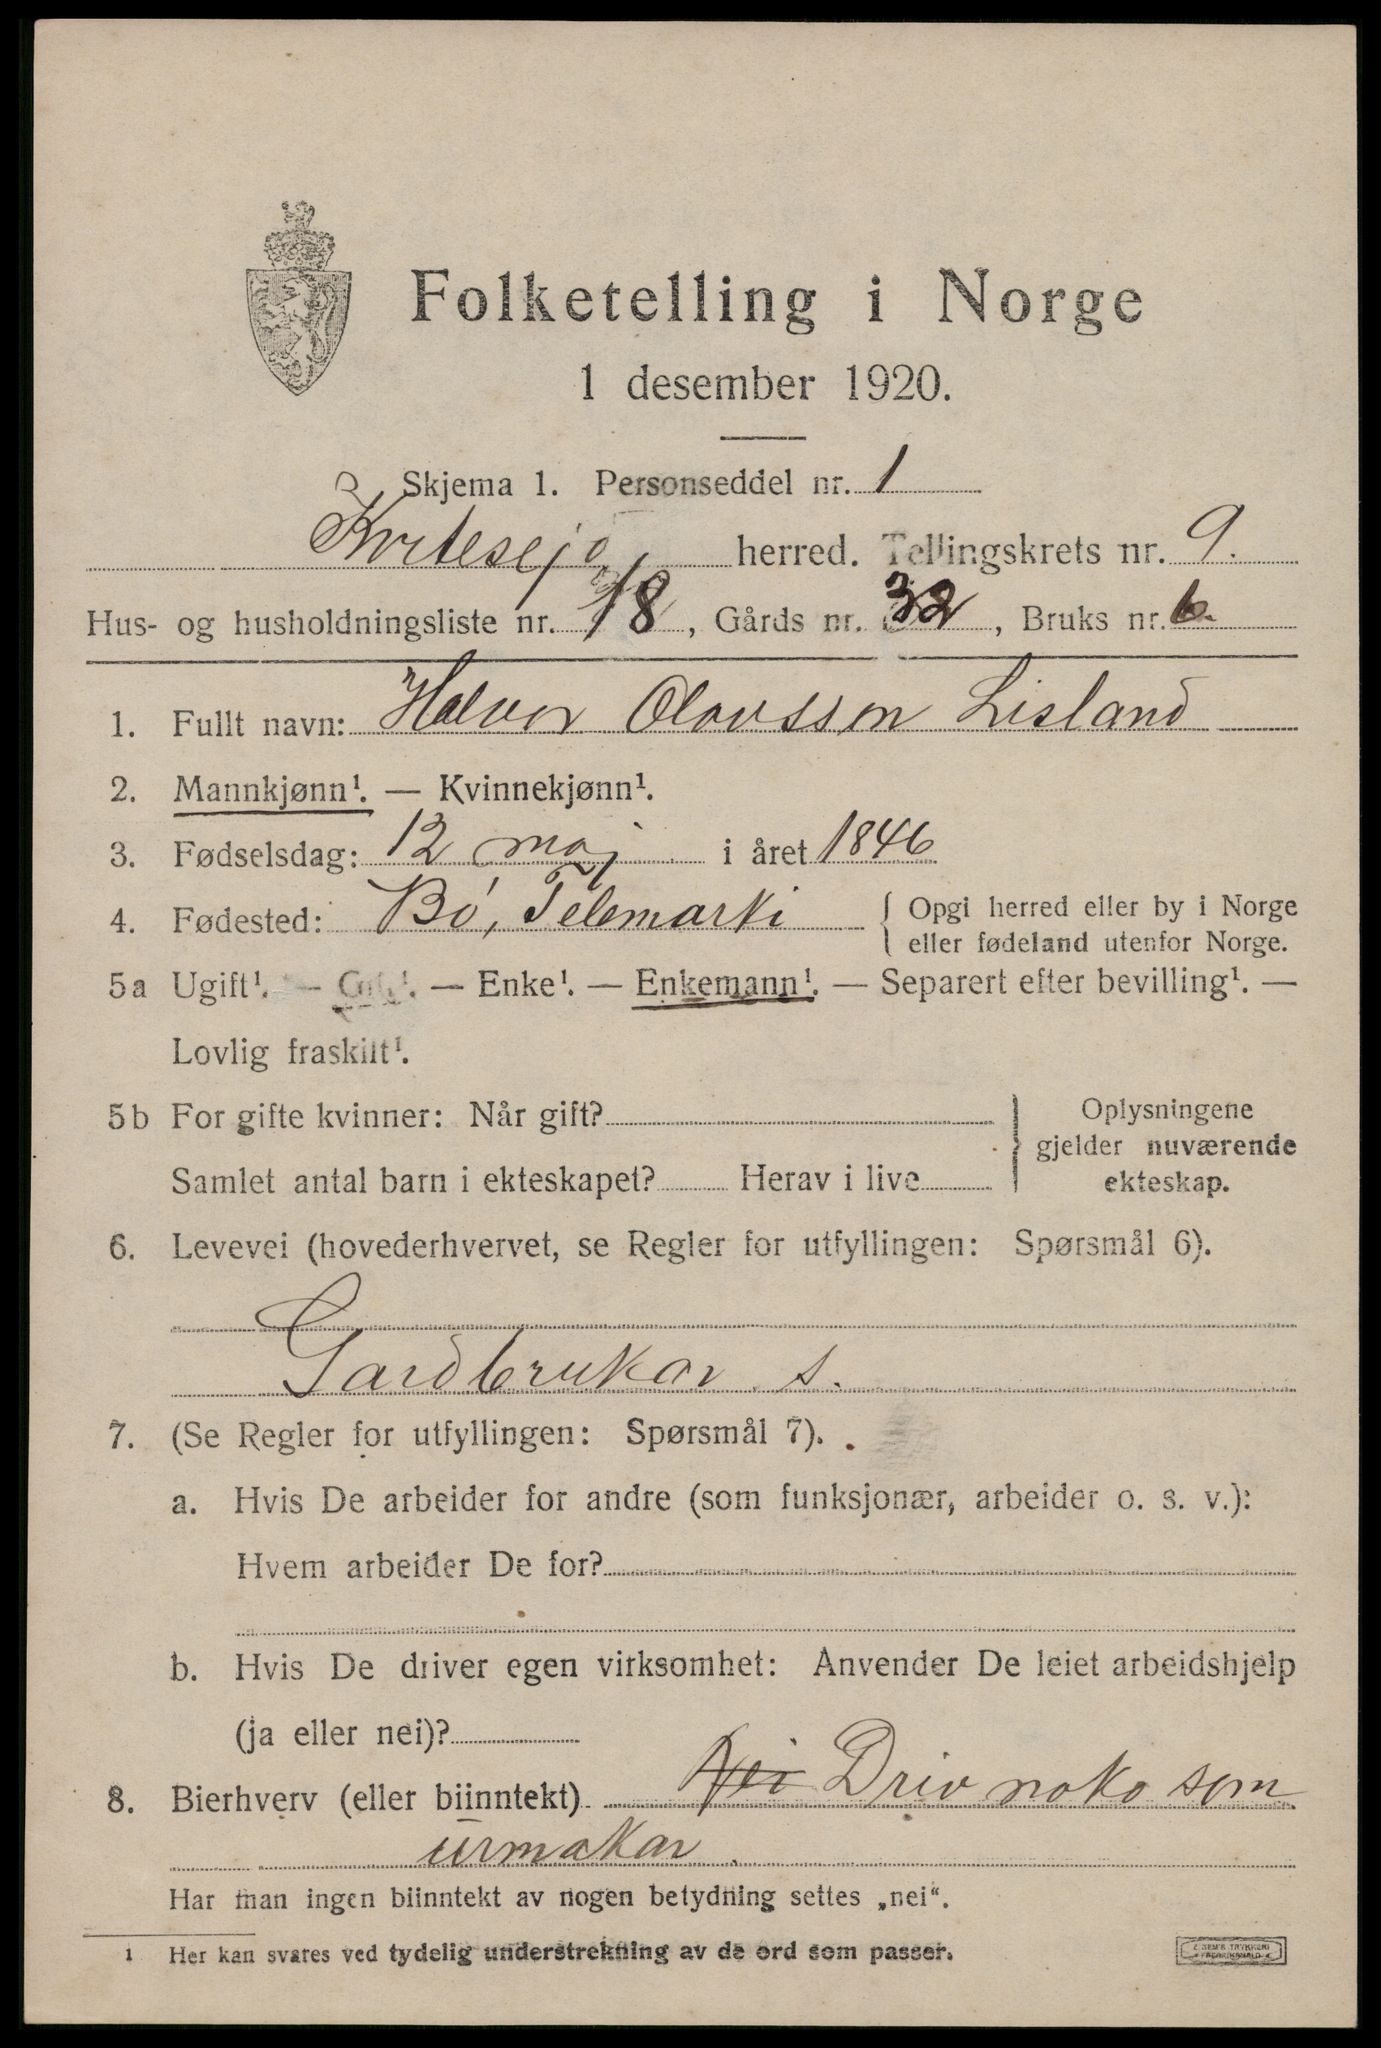 Folketelling i Norge
1 desember 1920.
Skjema 1. Personseddel nr. 1
Kvitesejd herred. Tellingskrets nr. 9.
Hus- og husholdningsliste nr. 18, Gårds nr. 32, Bruks nr. 6.
1. Fullt navn: Halvor Olavsson Lisland
2. Mannkjønn¹. — Kvinnekjønn¹.
3. Fødselsdag: 12 maj i året 1846
4. Fødested: Bø, Telemarki { Opgi herred eller by i Norge
eller fødeland utenfor Norge.
5a Ugift¹. — Gift¹. — Enke¹. — Enkemann¹. — Separert efter bevilling¹. —
Lovlig fraskilt¹.
5b For gifte kvinner: Når gift? } Oplysningene
gjelder nuværende
Samlet antal barn i ekteskapet? Herav i live ekteskap.
6. Levevei (hovederhvervet, se Regler for utfyllingen: Spørsmål 6).
Gardbrukar s.
7. (Se Regler for utfyllingen: Spørsmål 7).
a. Hvis De arbeider for andre (som funksjonær, arbeider o. s. v.):
Hvem arbeider De for?
b. Hvis De driver egen virksomhet: Anvender De leiet arbeidshjelp
(ja eller nei)?
8. Bierhverv (eller biinntekt) Nei Driv noko som
urmakar.
Har man ingen biinntekt av nogen betydning settes „nei“.
1 Her kan svares ved tydelig understrekning av de ord som passer.